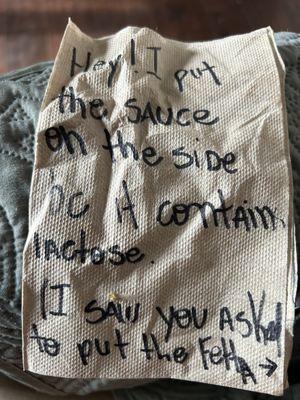 Hey! I put
the SAUCE
on the SIDE
bc it contain
lactose.
(I SAW YOU ASKed
to put the FettA →